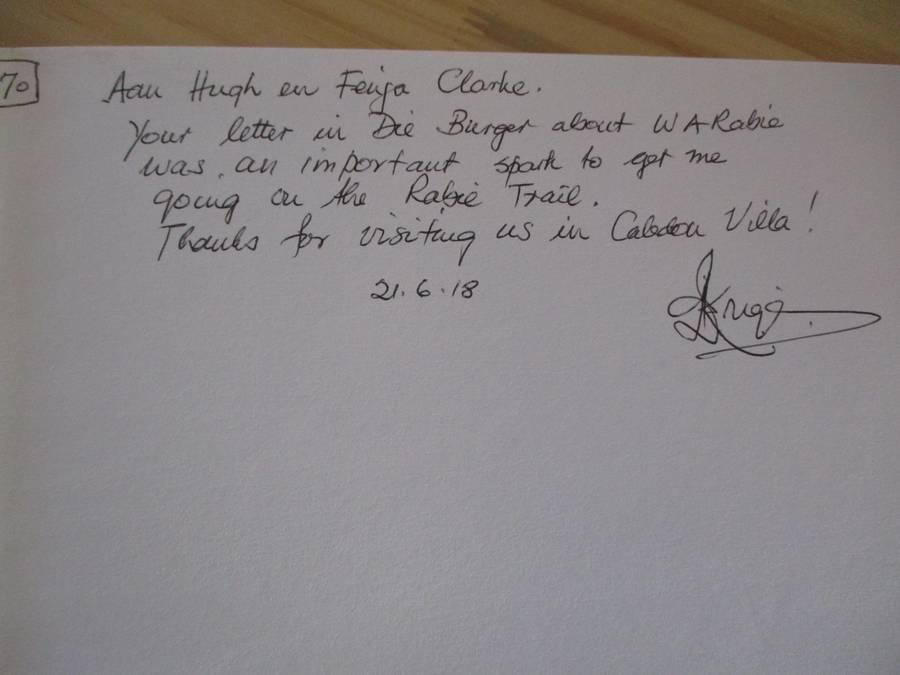 70
Aan Hugh en Fenja Clarke.
Your letter in Die Burger about WA Rabie
was an important spark to get me
going on the Rabie Trail.
Thanks for visiting us in Caledon Villa!
21.6.18